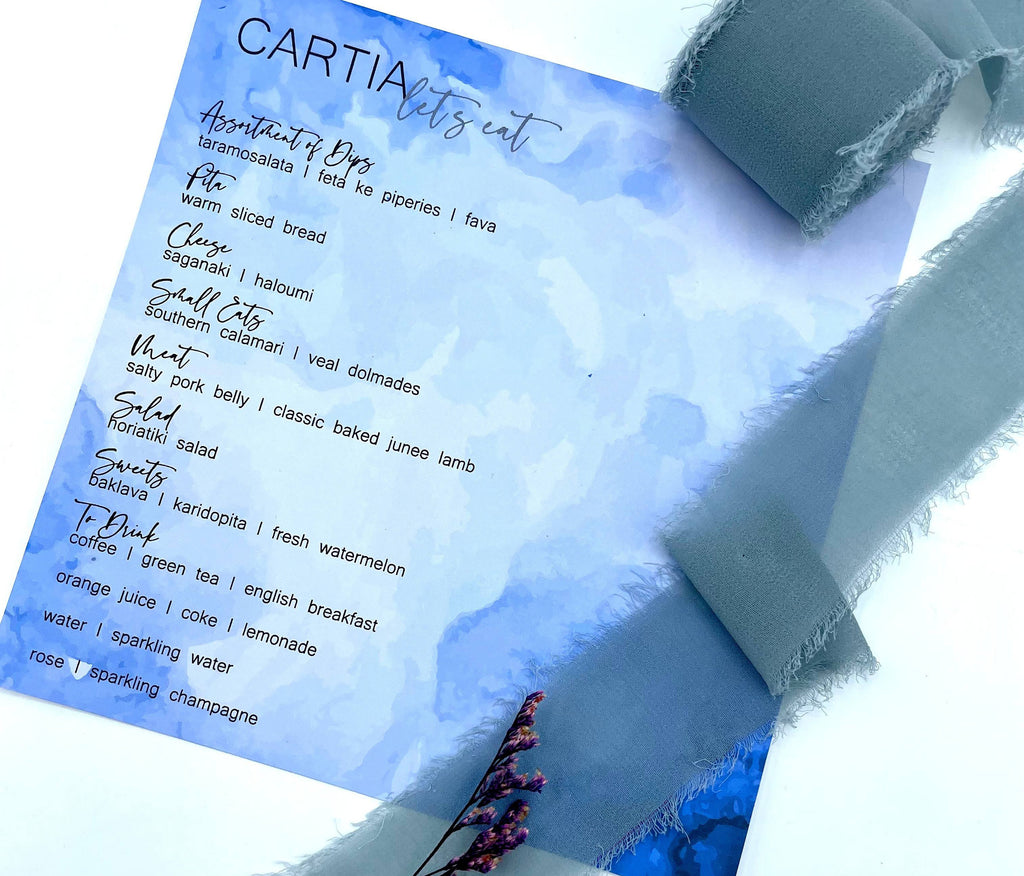 CARTIA
let's eat
Assortment of Dips
taramosalata | feta ke piperies | fava
Pita
warm sliced bread
Cheese
saganaki | haloumi
Small Eats
southern calamari | veal dolmades
Meat
salty pork belly | classic baked junee lamb
Salad
horiatiki salad
Sweets
baklava | karidopita | fresh watermelon
To Drink
coffee | green tea | english breakfast
orange juice | coke | lemonade
water | sparkling water
rose | sparkling champagne